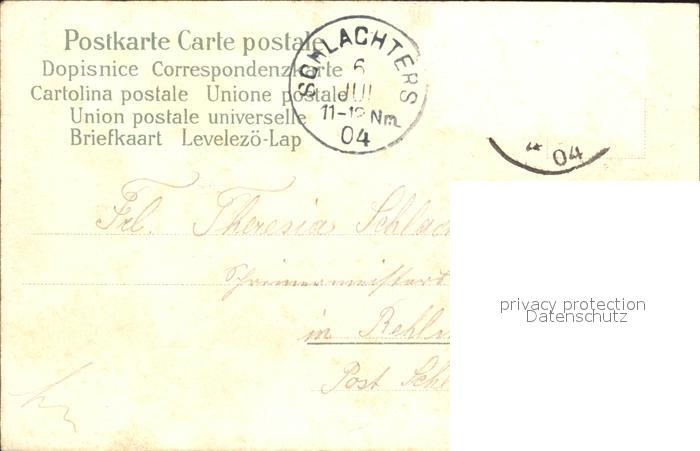 Postkarte Carte postale
Dopisnice Correspondenzkarte
Cartolina postale Unione postale
Union postale universelle
Briefkaart Levelező-Lap
SCHLACHTERS
6
JUL
11-12 Nm
04
04
Frl. Theresia Schlach
Schreinermeisters
in Rehl
Post Schl
privacy protection
Datenschutz